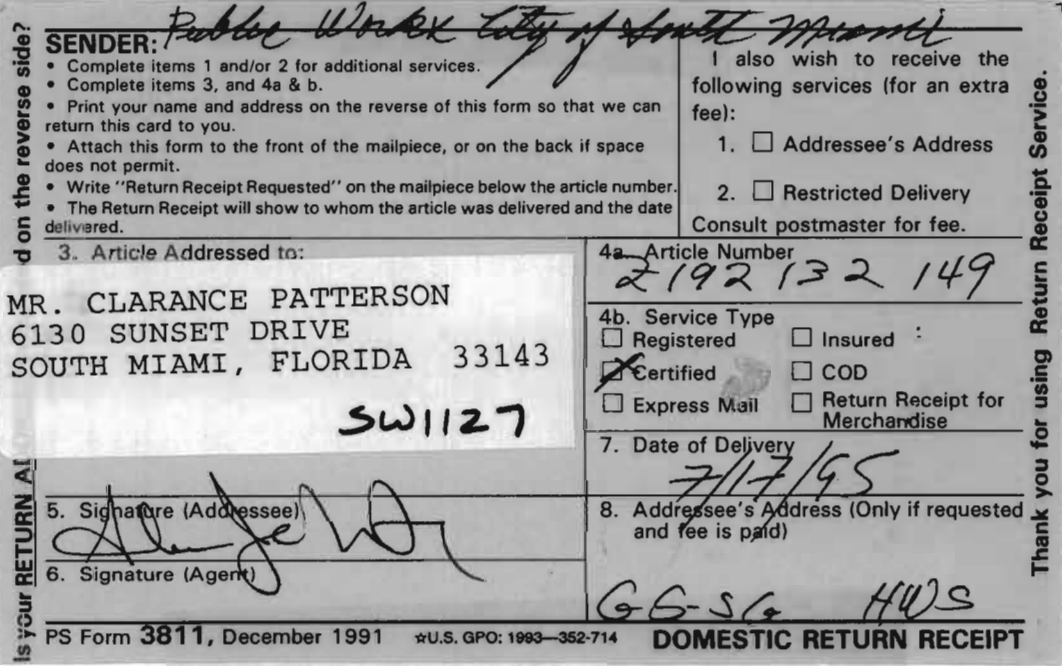 Public Works City of South Miami
SENDER:
• Complete items 1 and/or 2 for additional services.
• Complete items 3, and 4a & b.
• Print your name and address on the reverse of this form so that we can
return this card to you.
• Attach this form to the front of the mailpiece, or on the back if space
does not permit.
• Write "Return Receipt Requested" on the mailpiece below the article number.
• The Return Receipt will show to whom the article was delivered and the date
delivered.
I also wish to receive the
following services (for an extra
fee):
1. ☐ Addressee's Address
2. ☐ Restricted Delivery
Consult postmaster for fee.
3. Article Addressed to:
MR. CLARANCE PATTERSON
6130 SUNSET DRIVE
SOUTH MIAMI, FLORIDA 33143
SW1127
4a. Article Number
Z 192 132 149
4b. Service Type
☐ Registered ☐ Insured
☒ Certified ☐ COD
☐ Express Mail ☐ Return Receipt for
Merchandise
7. Date of Delivery
7/17/95
5. Signature (Addressee)
6. Signature (Agent)
8. Addressee's Address (Only if requested
and fee is paid)
GG-SG HWS
PS Form 3811, December 1991 ☆U.S. GPO: 1993—352-714 DOMESTIC RETURN RECEIPT
Is your RETURN
d on the reverse side?
Thank you for using Return Receipt Service.